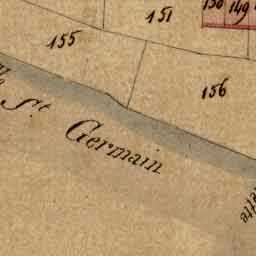 150
151
149
155
156
St. Germain